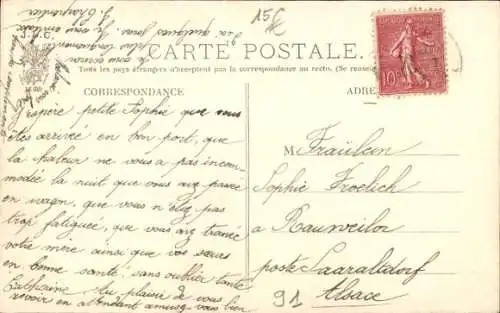 J.D.C.
15f
CARTE POSTALE.
Tous les pays étrangers n'acceptent pas la correspondance au recto. (Se rense
CORRESPONDANCE
ADRE
J'espère petite Sophie que vous
êtes arrivée en bon port, que
la chaleur ne vous a pas incom-
modée la nuit que vous avez passée
en wagon, que vous n'êtes pas
trop fatiguée, que vous avez trouvée
votre mère ainsi que vos sœurs
en bonne santé, sans oublier tante
Catherine. Au plaisir de vous
revoir en attendant amusez vous bien
J. Charpentier
10
M Fraülein
Sophie Froelich
a Rauweiler
poste Saaraltdorf
Alsace
91